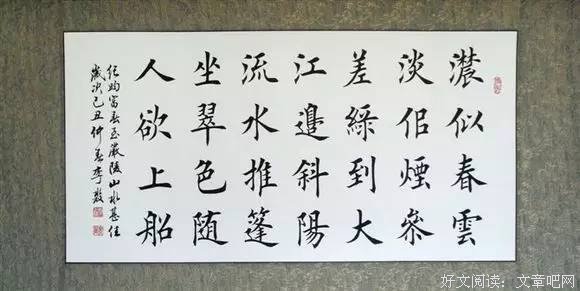 濃似春雲
淡佀煙參
差綠到大
江邊斜陽
流水推篷
坐翠色隨
人欲上船
纪昀富春至嚴陵山水甚佳
歲次己丑仲春李
好文阅读：文章吧网